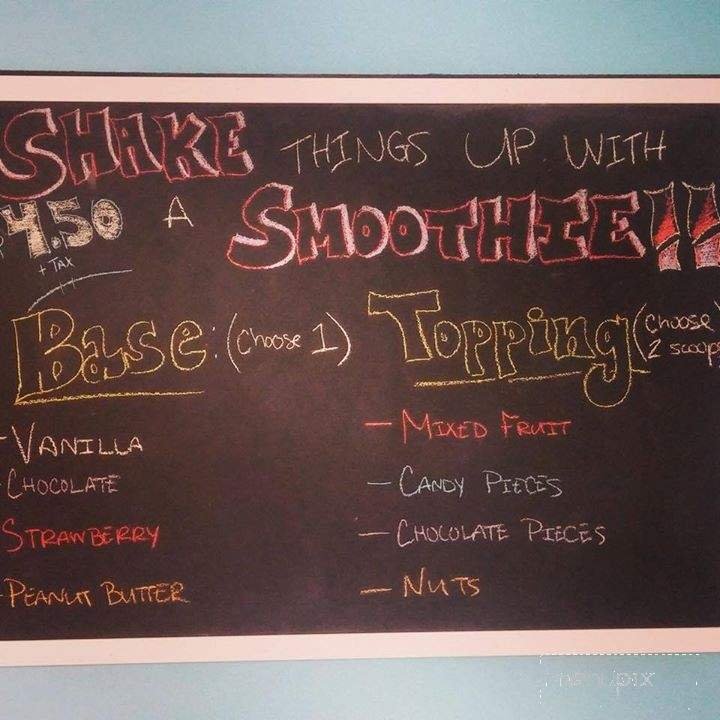 SHAKE THINGS UP WITH
$4.50 A SMOOTHIE!!
+ TAX
Base: (Choose 1)
Topping (Choose 2 scoops
- VANILLA
- CHOCOLATE
- STRAWBERRY
- PEANUT BUTTER
- MIXED FRUIT
- CANDY PIECES
- CHOCOLATE PIECES
- NUTS